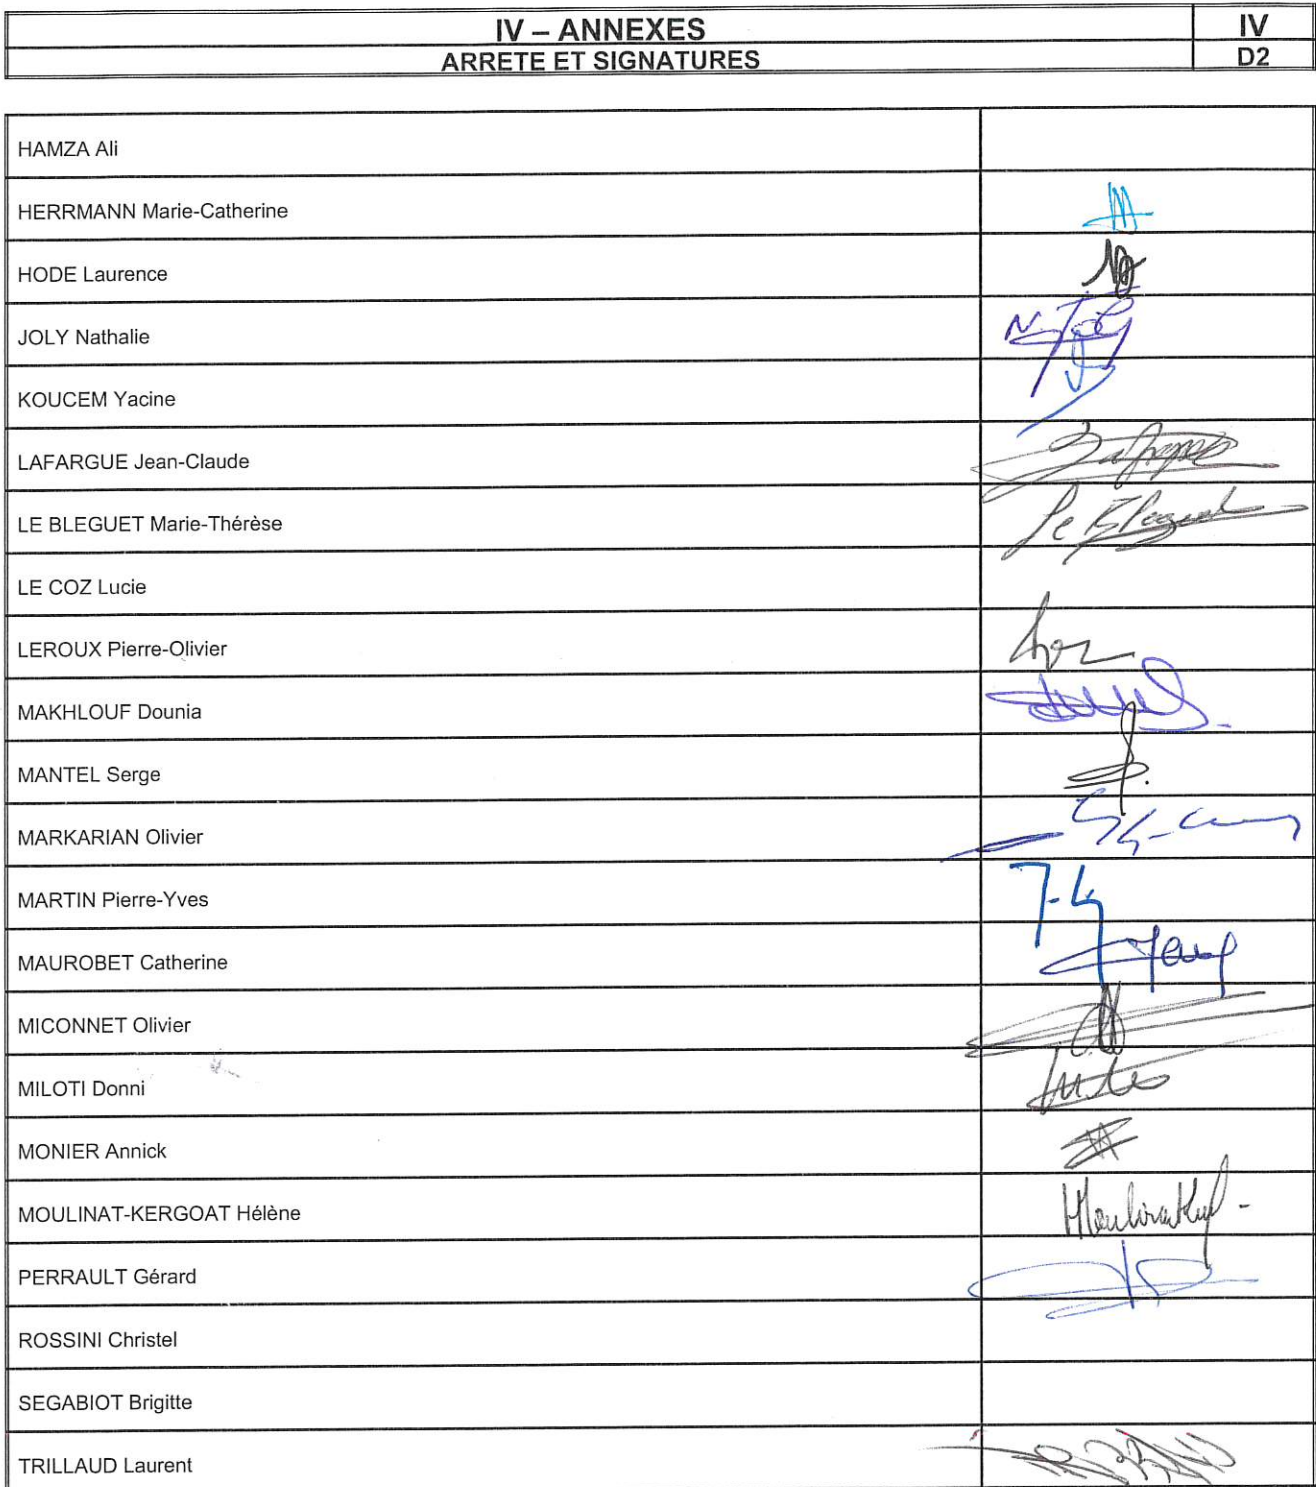 IV – ANNEXES
IV
ARRETE ET SIGNATURES
D2
HAMZA Ali
HERRMANN Marie-Catherine
HODE Laurence
JOLY Nathalie
N. Joly
KOUCEM Yacine
LAFARGUE Jean-Claude
Lafargue
LE BLEGUET Marie-Thérèse
Le Bleguet
LE COZ Lucie
LEROUX Pierre-Olivier
MAKHLOUF Dounia
MANTEL Serge
MARKARIAN Olivier
MARTIN Pierre-Yves
MAUROBET Catherine
MICONNET Olivier
MILOTI Donni
MONIER Annick
MOULINAT-KERGOAT Hélène
PERRAULT Gérard
ROSSINI Christel
SEGABIOT Brigitte
TRILLAUD Laurent